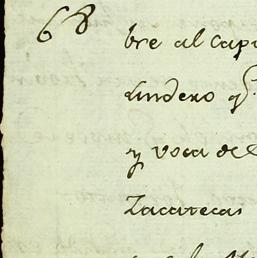 68
bre al Capi
Lindero q.
y voca de
Zacatecas